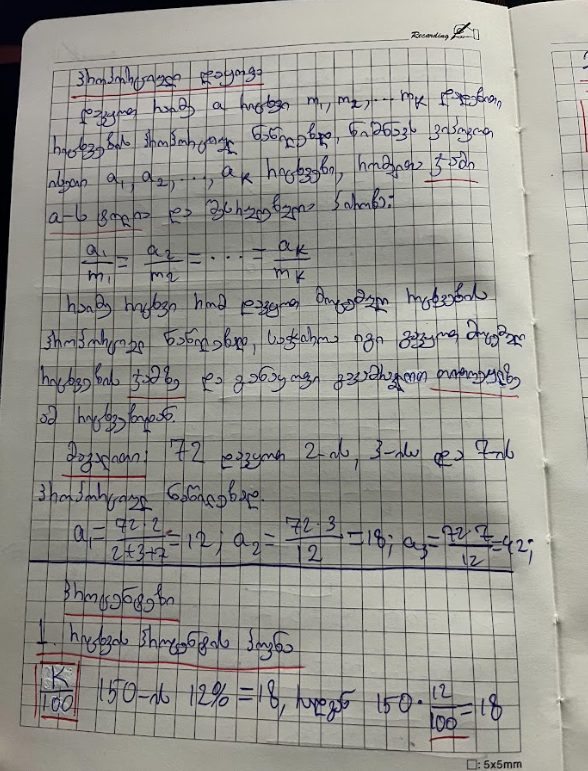 Recording
პროპორციული დაყოფა
დავყოთ რაიმე a რიცხვი m₁, m₂, ... mₖ დადებითი
რიცხვების პროპორციულ ნაწილებად, ნიშნავს ვიპოვოთ
ისეთი a₁, a₂, ..., aₖ რიცხვები, რომელთა ჯამი
a-ს ტოლია და შესრულებულია პირობა:
a₁/m₁ = a₂/m₂ = ... = aₖ/mₖ
რაიმე რიცხვი რომ დავყოთ მოცემული რიცხვების
პროპორციულ ნაწილებად, საჭიროა იგი გავყოთ მოცემულ
რიცხვების ჯამზე და განაყოფი გავამრავლოთ თითოეულზე
ამ რიცხვებიდან.
მაგალითი: 72 დავყოთ 2-ის, 3-ის და 7-ის
პროპორციულ ნაწილებად.
a₁ = 72·2/2+3+7 = 12; a₂ = 72·3/12 = 18; a₃ = 72·7/12 = 42;
პროცენტები
1. რიცხვის პროცენტის პოვნა
K/100 150-ის 12% = 18, რადგან 150·12/100 = 18
□: 5x5mm